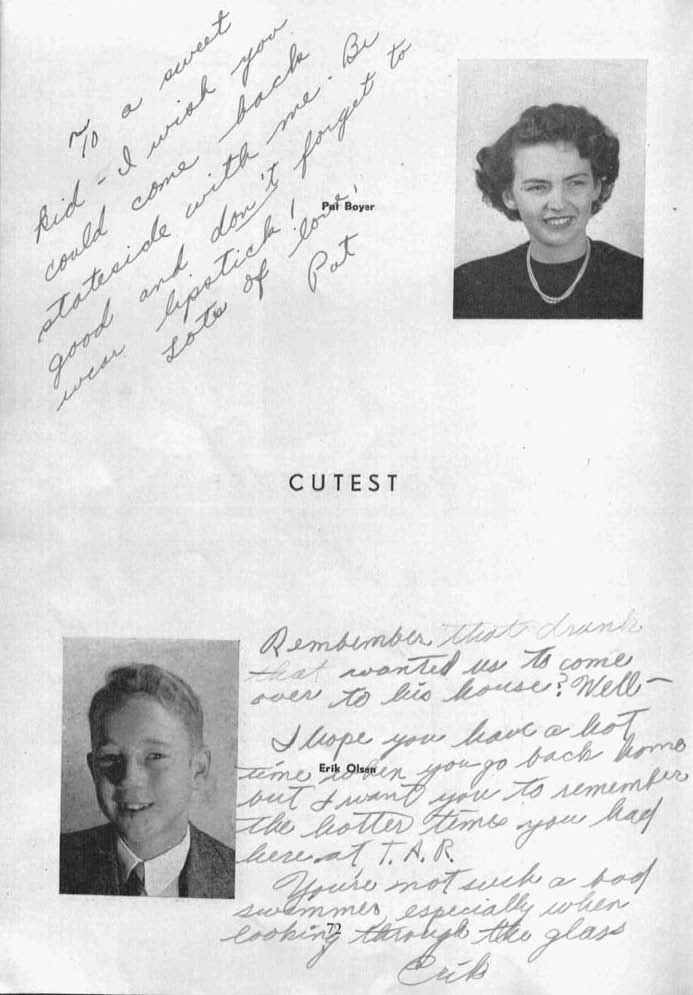 To a sweet
kid - I wish you
could come back
stateside with me. Be
good and don't forget to
wear lipstick!
Lots of love,
Pat
Pat Boyer
CUTEST
Rembember that drunk
that wanted us to come
over to his house? Well—
I hope you have a hot
time when you go back home
but I want you to remember
the hotter times you had
here at T.A.R.
You're not such a bad
swimmer, especially when
looking through the glass
Erik
Erik Olsen
72